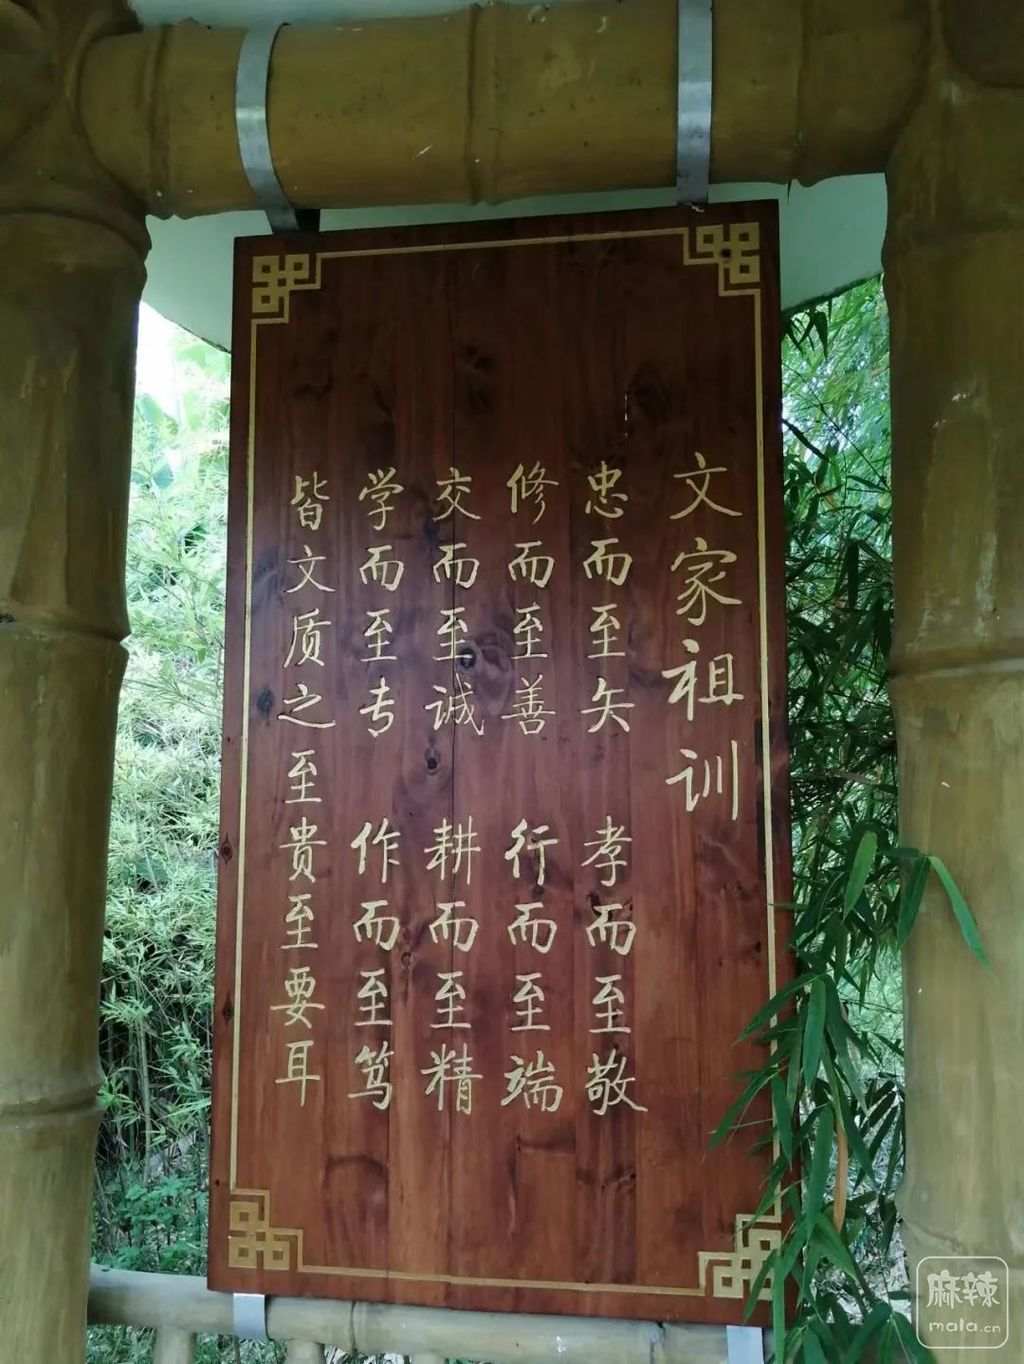 文家祖训
忠而至矢 孝而至敬
修而至善 行而至端
交而至诚 耕而至精
学而至专 作而至笃
皆文质之至贵至要耳
麻辣
mala.cn